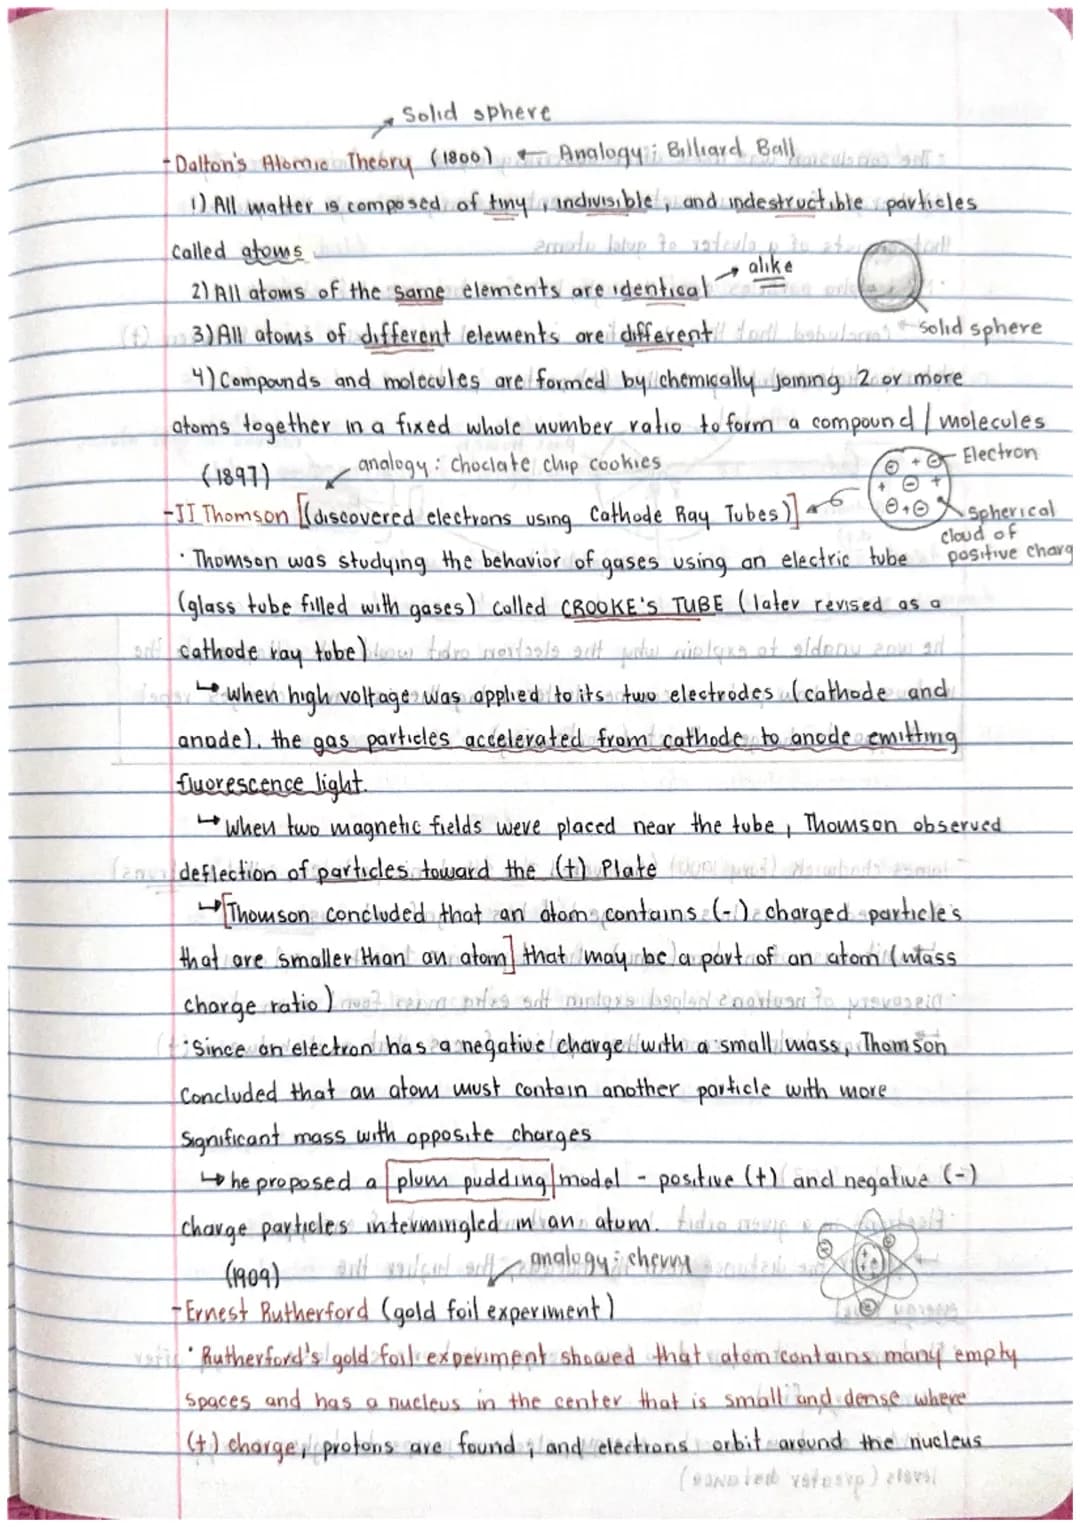 Solid sphere
-Dalton's Atomic Theory (1800) ← Analogy: Billiard Ball
1) All matter is composed of tiny, indivisible, and indestructible particles
called atoms
→ alike
2) All atoms of the same elements are identical
3) All atoms of different elements are different
solid sphere
4) Compounds and molecules are formed by chemically joining 2 or more
atoms together in a fixed whole number ratio to form a compound / molecules
(1897)
analogy: choclate chip cookies
Electron
-JJ Thomson [(discovered electrons using Cathode Ray Tubes)]
Spherical
cloud of
positive charg
· Thomson was studying the behavior of gases using an electric tube
(glass tube filled with gases) called CROOKE'S TUBE (later revised as a
cathode ray tube)
↳ when high voltage was applied to its two electrodes (cathode and
anode), the gas particles accelerated from cathode to anode emitting
fluorescence light.
↳ When two magnetic fields were placed near the tube, Thomson observed
deflection of particles toward the (+) Plate
↳ [Thomson concluded that an atom contains (-) charged particles
that are smaller than an atom] that may be a part of an atom (mass
charge ratio)
· Since an electron has a negative charge with a small mass, Thomson
Concluded that an atom must contain another particle with more
Significant mass with opposite charges
↳ he proposed a plum pudding model - positive (+) and negative (-)
charge particles intermingled in an atum.
(1909)
analogy: cherry
-Ernest Rutherford (gold foil experiment)
· Rutherford's gold foil experiment showed that atom contains many empty
spaces and has a nucleus in the center that is small and dense where
(+) charge, protons are found, and electrons orbit around the nucleus